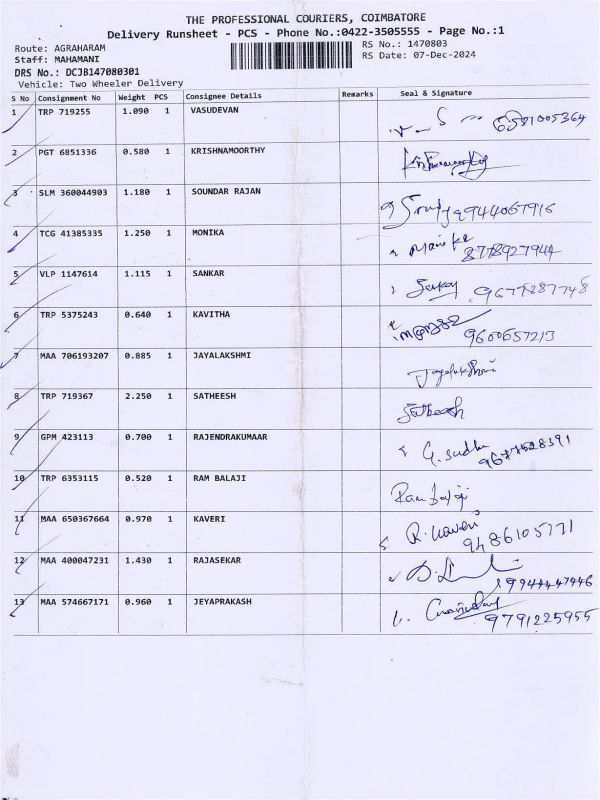 THE PROFESSIONAL COURIERS, COIMBATORE
Delivery Runsheet - PCS - Phone No.:0422-3505555 - Page No.:1
Route: AGRAHARAM
RS No.: 1470803
Staff: MAHAMANI
RS Date: 07-Dec-2024
DRS No.: DCJB147080301
Vehicle: Two Wheeler Delivery
S No Consignment No Weight PCS Consignee Details Remarks Seal & Signature
1 TRP 719255 1.090 1 VASUDEVAN
2 PGT 6851336 0.580 1 KRISHNAMOORTHY
3 SLM 360044903 1.180 1 SOUNDAR RAJAN 9944067916
4 TCG 41385335 1.250 1 MONIKA 8778927944
5 VLP 1147614 1.115 1 SANKAR 9677287748
6 TRP 5375243 0.640 1 KAVITHA 9600657213
7 MAA 706193207 0.885 1 JAYALAKSHMI Jayalakshmi
8 TRP 719367 2.250 1 SATHEESH Satheesh
9 GPM 423113 0.700 1 RAJENDRAKUMAAR G. Sudha
9677528391
10 TRP 6353115 0.520 1 RAM BALAJI Ram balaji
11 MAA 650367664 0.970 1 KAVERI R. Kaveri
9486105771
12 MAA 400047231 1.430 1 RAJASEKAR
9944447446
13 MAA 574667171 0.960 1 JEYAPRAKASH
9791225955